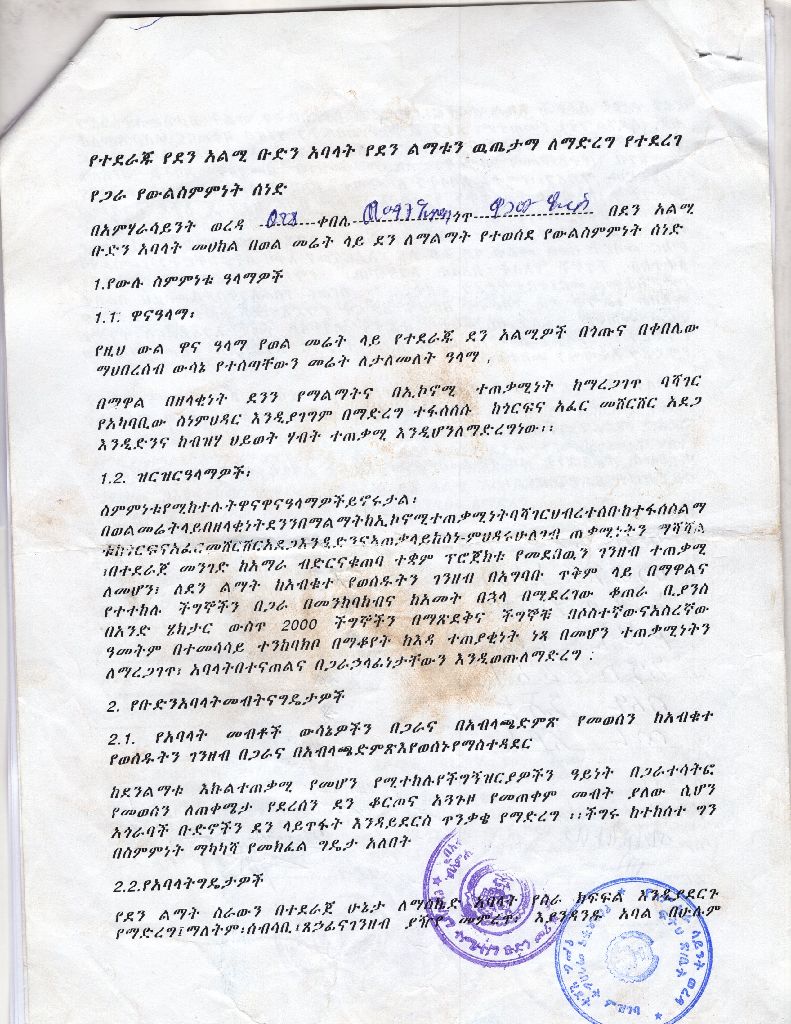 የተደራጁ የደን አልሚ ቡድን አባላት የደን ልማቱን ዉጤታማ ለማድረግ የተደረገ
የጋራ የውልስምምነት ሰነድ
በአምሃራሳይንት ወረዳ ቀበሌ በደን አልሚ
ቡድን አባላት መሀከል በወል መሬት ላይ ደን ለማልማት የተወሰደ የውልስምምነት ሰነድ
1.የውሉ ስምምነቱ ዓላማዎች
1.1. ዋናዓላማ፡
የዚህ ውል ዋና ዓላማ የወል መሬት ላይ የተደራጁ ደን አልሚዎች በጎጡና በቀበሌው
ማህበረሰብ ውሳኔ የተሰጣቸውን መሬት ለታለመለት ዓላማ ,
በማዋል በዘላቂነት ደንን የማልማትና በኢኮኖሚ ተጠቃሚነት ከማረጋገጥ ባሻገር
የአካባቢው ስነምህዳር እንዲያገግም በማድረግ ተፋሰሰሱ ከጎርፍና አፈር መሸርሸር አደጋ
እንዲድንና ከብዝሃ ህይወት ሃብት ተጠቃሚ እንዲሆንለማድረግነው፡፡
1.2. ዝርዝርዓላማዎች፡
ስምምነቱየሚከተሉትዋናዋናዓላማዎችይኖሩታል፡
በወልመሬትላይበዘላቂነትደንንበማልማትከኢኮኖሚተጠቃሚነትባሻገርህብረተሰቡከተፋሰስልማ
፣በተደራጀ መንገድ ከአማራ ብድርናቁጠባ ተቋም ፕሮጀክቱ የመደበዉን ገንዘብ ተጠቃሚ
ለመሆን፣ ለደን ልማት ከአብቁተ የወሰዱትን ገንዘብ በአግባቡ ጥቅም ላይ በማዋልና
የተተከሉ ችግኞችን በጋራ በመንከባከብና ከአመት በኋላ በሚደረገው ቆጠራ ቢያንስ
በአንድ ሃክታር ውስጥ 2000 ችግኞችን በማጽደቅና ችግኞቹ በሶስተኛውናአስረኛው
ዓመትም በተመሳሳይ ተንከባክቦ በማቆየት ከእዳ ተጠያቂነት ነጻ በመሆን ተጠቃሚነትን
ለማረጋገጥ፣ አባላትበተናጠልና በጋራኃላፊነታቸውን እንዲወጡለማድረግ :
2. የቡድንአባላትመብትናግዴታዎች
2.1. የአባላት መብቶች ውሳኔዎችን በጋራና በአብላጫድምጽ የመወሰን ከአብቁተ
የወሰዱትን ገንዘብ በጋራና በአብላጫድምጽእየወሰኑየማስተዳደር
ከደንልማቱ እኩልተጠቃሚ የመሆን የሚተከሉየችግኝዝርያዎችን ዓይነት በጋራተሳትፎ
የመወሰን ለጠቀሜታ የደረሰን ደን ቆርጦና አጓጉዞ የመጠቀም መብት ያለው ሲሆን
አጎራባች ቡድኖችን ደን ላይጥፋት እንዳይደርስ ጥንቃቄ የማድረግ ፡፡ችግሩ ከተከሰተ ግን
በስምምነት ማካካሻ የመክፈል ግዴታ አለበት
2.2.የአባላትግዴታዎች
የደን ልማት ስራውን በተደራጀ ሁኔታ ለማስኬድ አባላት የስራ ክፍፍል እንዲያደርጉ
የማድረግ፤ማለትም፡ሰብሳቢ፣ጸኃፊናገንዘብ ያዥን መምረጥ፣ እያንዳንዱ አባል በሁሉም